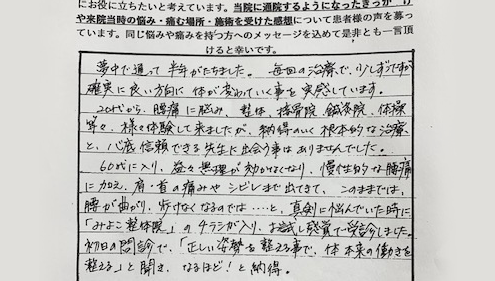 にお役に立ちたいと考えています。当院に通院するようになったきっかけ
や来院当時の悩み・痛む場所・施術を受けた感想について患者様の声を募っ
ています。同じ悩みや痛みを持つ方へのメッセージを込めて是非とも一言頂
けると幸いです。
夢中で通って半年がたちました。毎回の治療で、少しずつですが
確実に良い方向に体が変わっていく事を実感しています。
20代から、腰痛に悩み、整体、接骨院、鍼灸院、体操
等々、様々体験して来ましたが、納得のいく根本的な治療
と、心底信頼できる先生に出会う事はありませんでした。
60代に入り、益々無理が効かなくなり、慢性的な腰痛
に加え、肩・首の痛みやシビレまで出てきて、このままでは、
腰が曲がり、歩けなくなるのでは…と、真剣に悩んでいた時に
「みよこ整体院」のチラシが入り、お試し感覚で受診しました。
初日の問診で、「正しい姿勢を整える事で、体本来の働きを
整える」と聞き、なるほど!と納得。